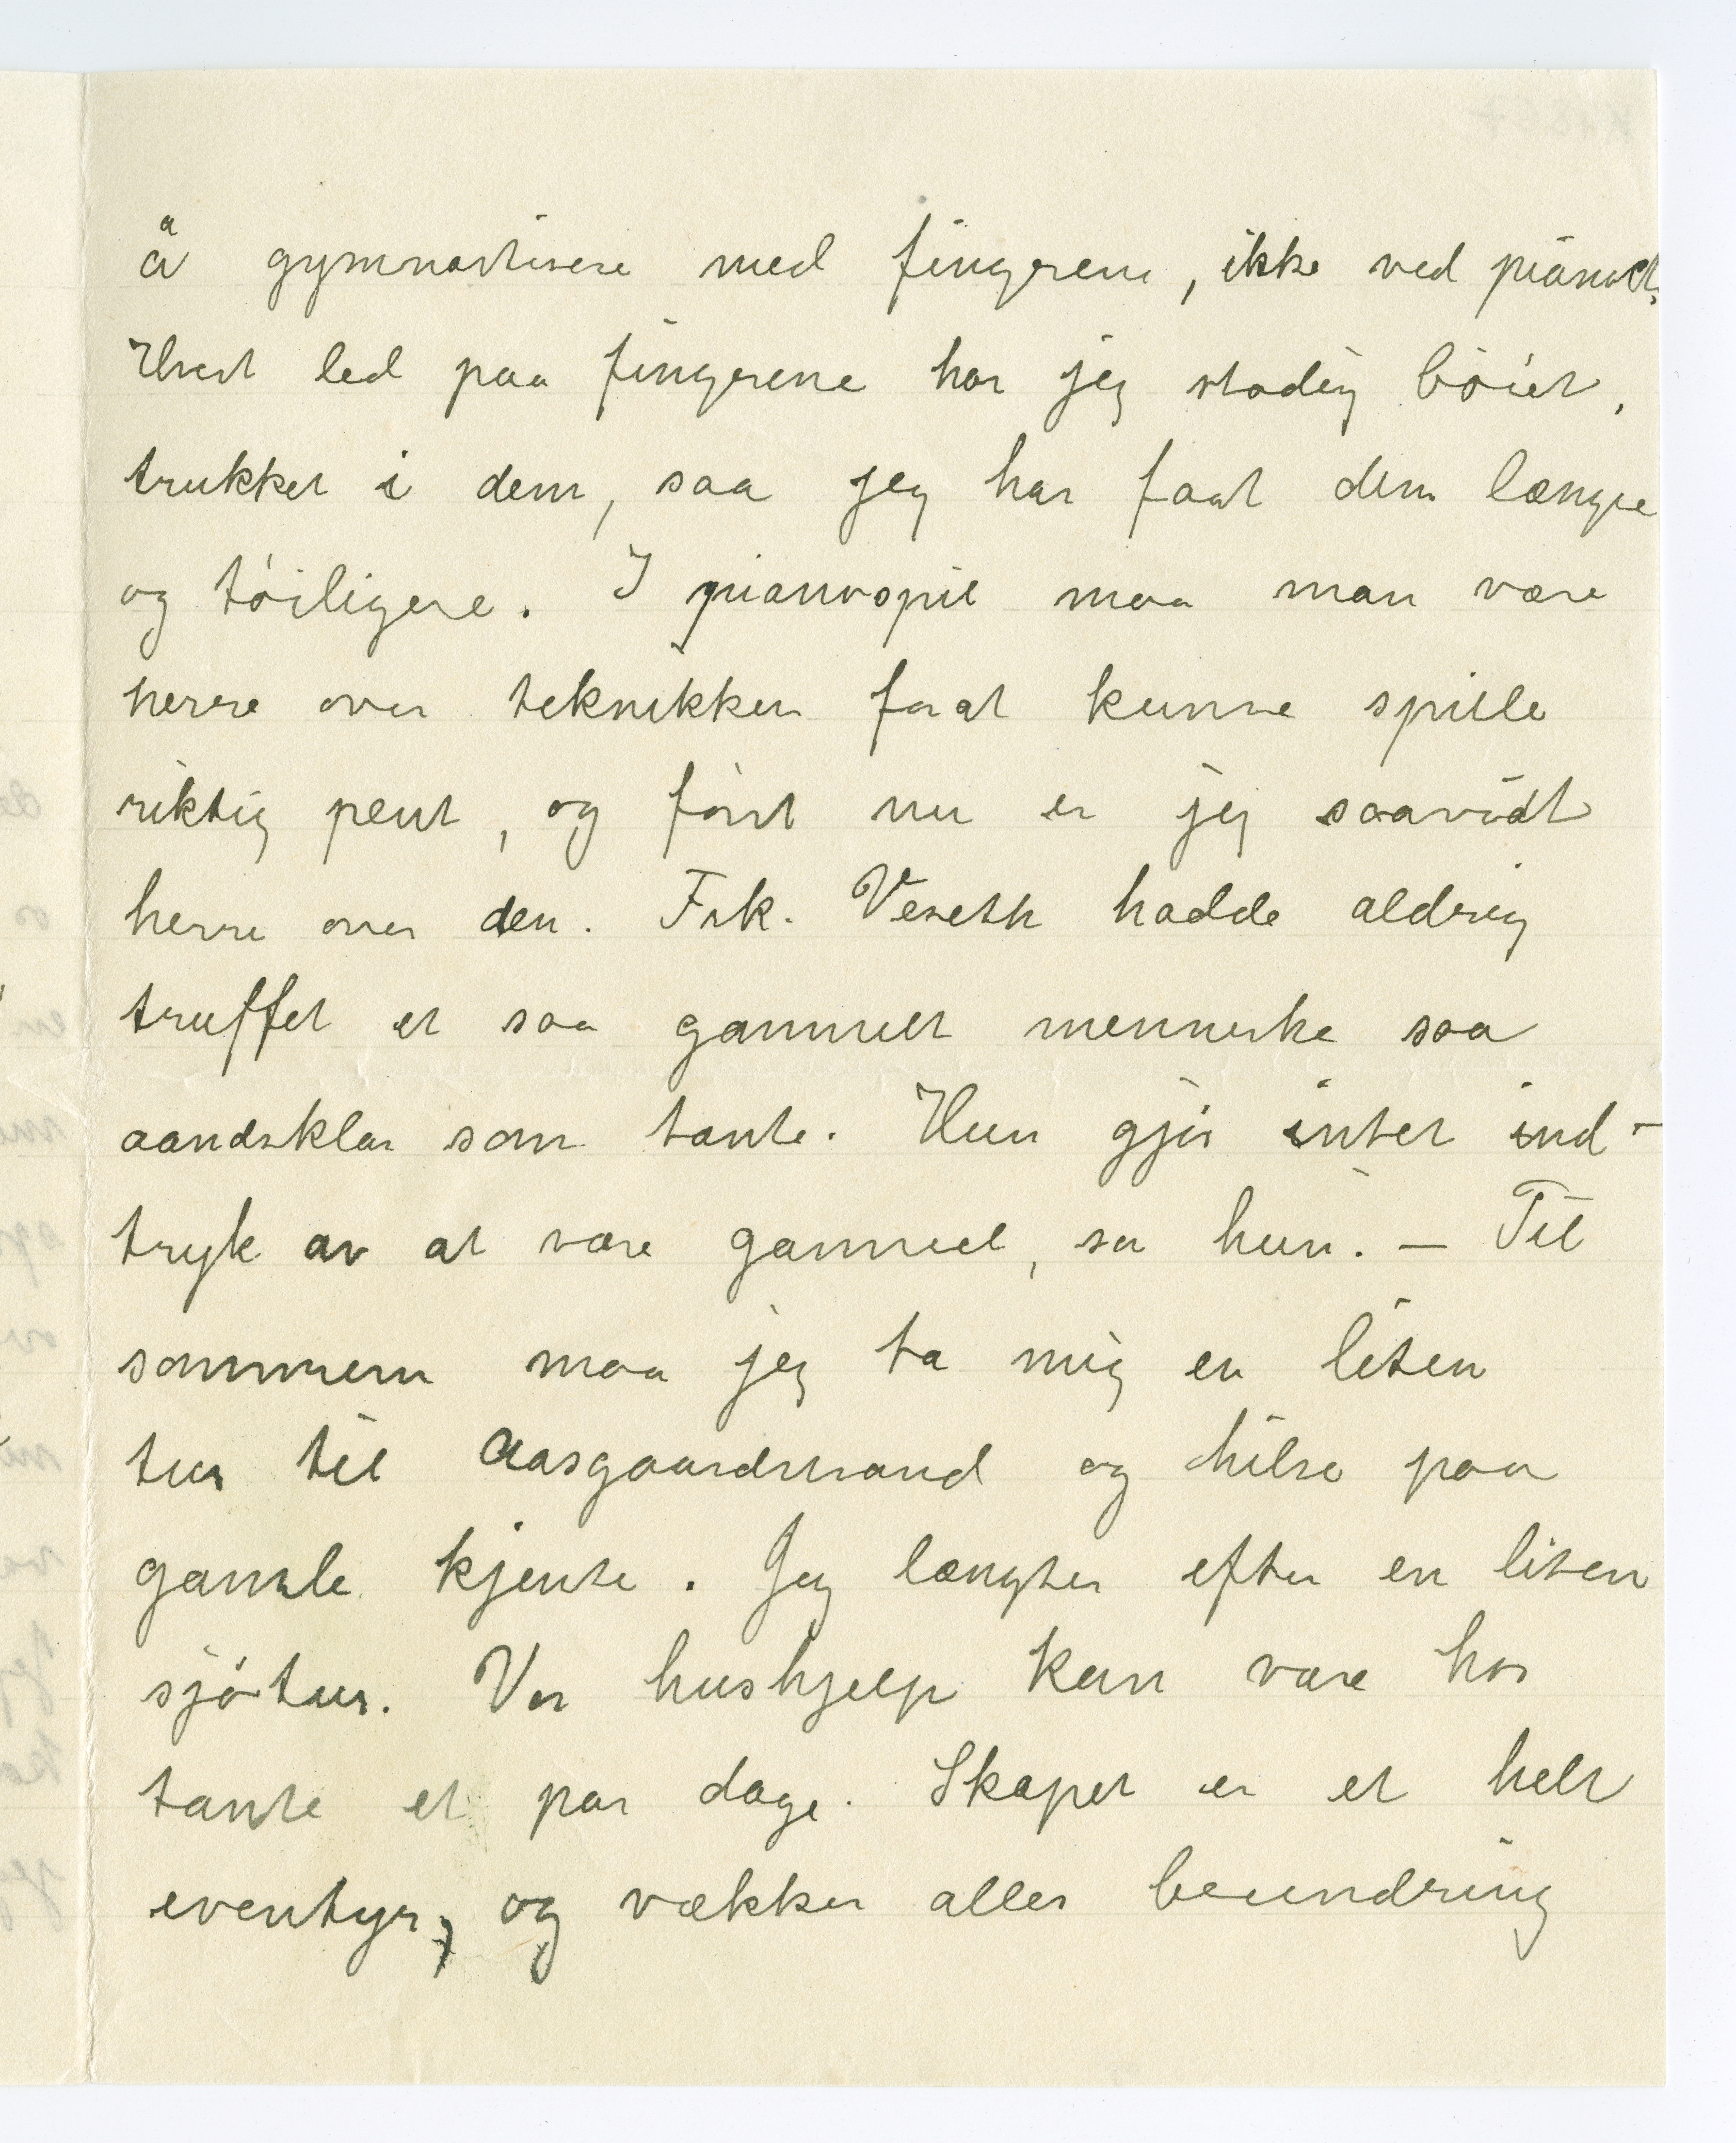 å gymnastisere med fingrene, ikke ved pianoet.
Hvert led paa fingrene har jeg stadig bøiet,
trukket i dem, saa jeg har faat dem længre
og tøiligere. I pianospil maa man være
herre over teknikken forat kunne spille
riktig pent, og først nu er jeg saavidt
herre over den. Frk. Veseth hadde aldrig
truffet et saa gammelt menneske saa
aandsklar som tante. Hun gjør intet ind-
tryk av at være gammel, sa hun. — Til
sommeren maa jeg ta mig en liten
tur til Aasgaardstrand og hilse paa
gamle kjente. Jeg længter efter en liten
sjøtur. Vor hushjelp kan være hos
tante et par dage. Skapet er et helt
eventyr, og vækker alles beundring